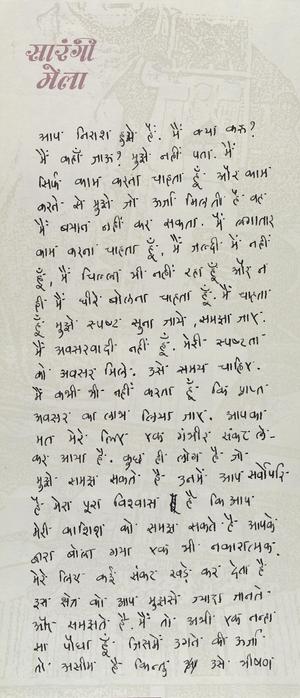 सारंगी
मेला
आप निराश हुये हैं. मैं क्या करू?
मैं कहाँ जाऊ? मुझे नहीं पता. मैं
सिर्फ काम करना चाहता हूँ और काम
करने से मुझे जो ऊर्जा मिलती है वह
मैं बयान नहीं कर सकता. मैं लगातार
काम करना चाहता हूँ, मैं जल्दी में नहीं
हूँ, मैं चिल्ला भी नहीं रहा हूँ और न
ही मैं धीरे बोलना चाहता हूँ. मैं चाहता
हूँ मुझे स्पष्ट सुना जाये, समझा जाए.
मैं अवसरवादी नहीं हूँ. मेरी स्पष्टता
को अवसर मिले. उसे समय चाहिए.
मैं कभी भी नहीं कहता हूँ कि प्राप्त
अवसर का लाभ लिया जाए. आपका
मत मेरे लिए एक गंभीर संकट ले-
कर आया है. कुछ ही लोग है जो
मुझे समझ सकते है उनमें आप सर्वोपरि
है मेरा पूरा विश्वास है कि आप
मेरी कोशिश को समझ सकते है आपके
द्वारा बोला गया एक भी नकारात्मक.
मेरे लिए कई संकट खड़े कर देता है
इस क्षेत्र को आप मुझसे ज्यादा जानते
और समझते है. मैं तो अभी एक नन्हा
सा पौधा हूँ जिसमें उगने की ऊर्जा
तो असीम है किन्तु उसे भीषण